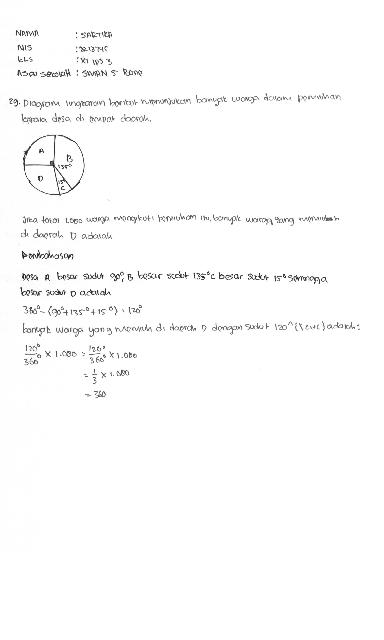 NAMA : SARTIKA
NIS
KLS : XI IPS 3
Asal sekolah : SMAN 5 Bone
29. Diagram lingkaran berikut menunjukan banyak warga dalam pemilihan
kepala desa di empat daerah.
A
B
135°
D
15°
C
Jika total 1.080 warga mengikuti pemilihan ini, banyak warga yang memilih
di daerah D adalah
Pembahasan
Desa A besar sudut 90°, B besar sudut 135° C besar sudut 15° sehingga
besar sudut D adalah
360° - (90° + 135° + 15°) = 120°
banyak warga yang memilih di daerah D dengan sudut 120° adalah:
120°/360° x 1.080 = 120°/360° x 1.080
= 1/3 x 1.080
= 360